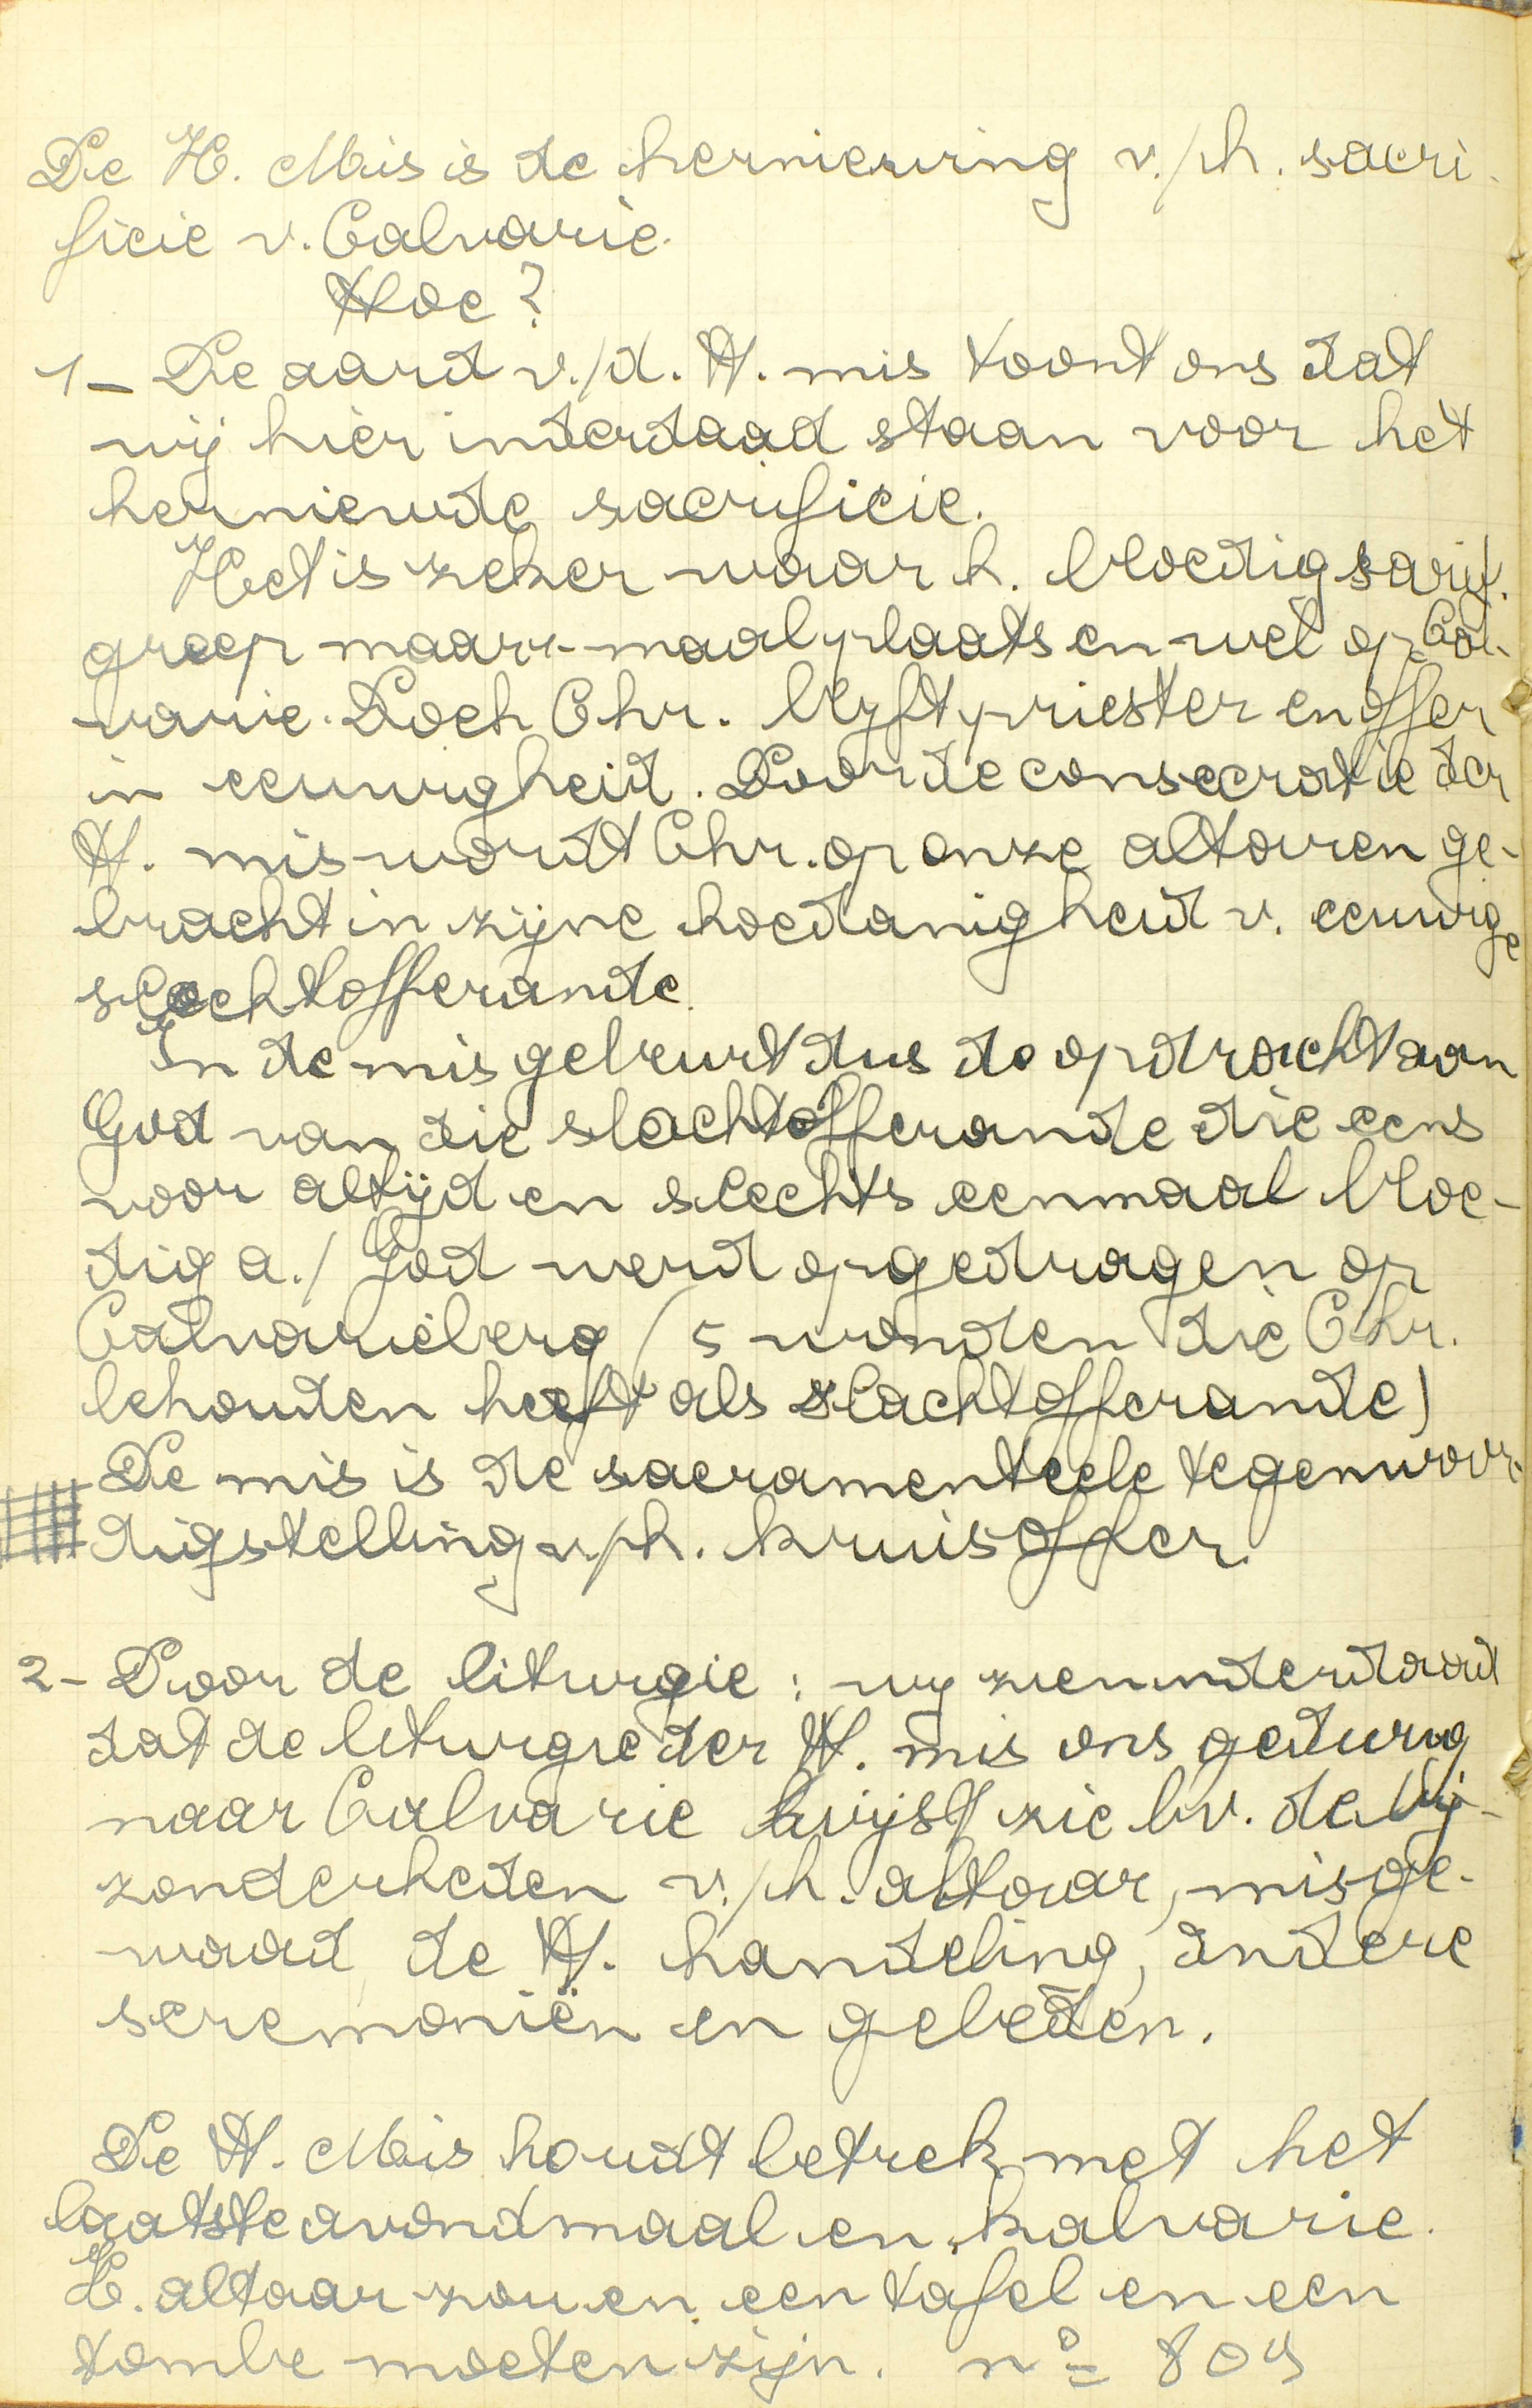 De H. Mis is de hernieuwing v./h. sacri-
ficie v. Calvarie.
Hoe?
1 - De aard v./d. H. mis toont ons dat
wij hier inderdaad staan voor het
hernieuwde sacrificie.
Het is zeker waar h. bloedig sacrif.
greep maar 1-maal plaats en wel op Cal-
varie. Doch Chr. blyft priester en offer
in eeuwigheid. Door de consecratie der
H. mis wordt Chr. op onze altaren ge-
bracht in zijne hoedanigheid v. eeuwige
slachtofferande.
In de mis gebeurt dus de opdracht aan
God van die slachtofferande die eens
voor altijd en slechts eenmaal bloe-
dig a./ God werd opgedragen op
Calvarieberg (5 wonden die Chr.
behouden heeft als slachtofferande)
De mis is de sacramenteele tegenwoor-
digstelling v/h. kruisoffer.
2 - Door de liturgie : wy zien inderdaad
dat de liturgie der H. mis ons gedurig
naar Calvarie wijst zie bv. de bij-
zonderheden v./h. altaar, misge-
waad, de H. handeling, andere
seremoniën en gebeden.
De H. Mis houdt betrek met het
laatste avondmaal en kalvarie.
H. altaar zou en een tafel en een
tombe moeten zijn. nº = 804